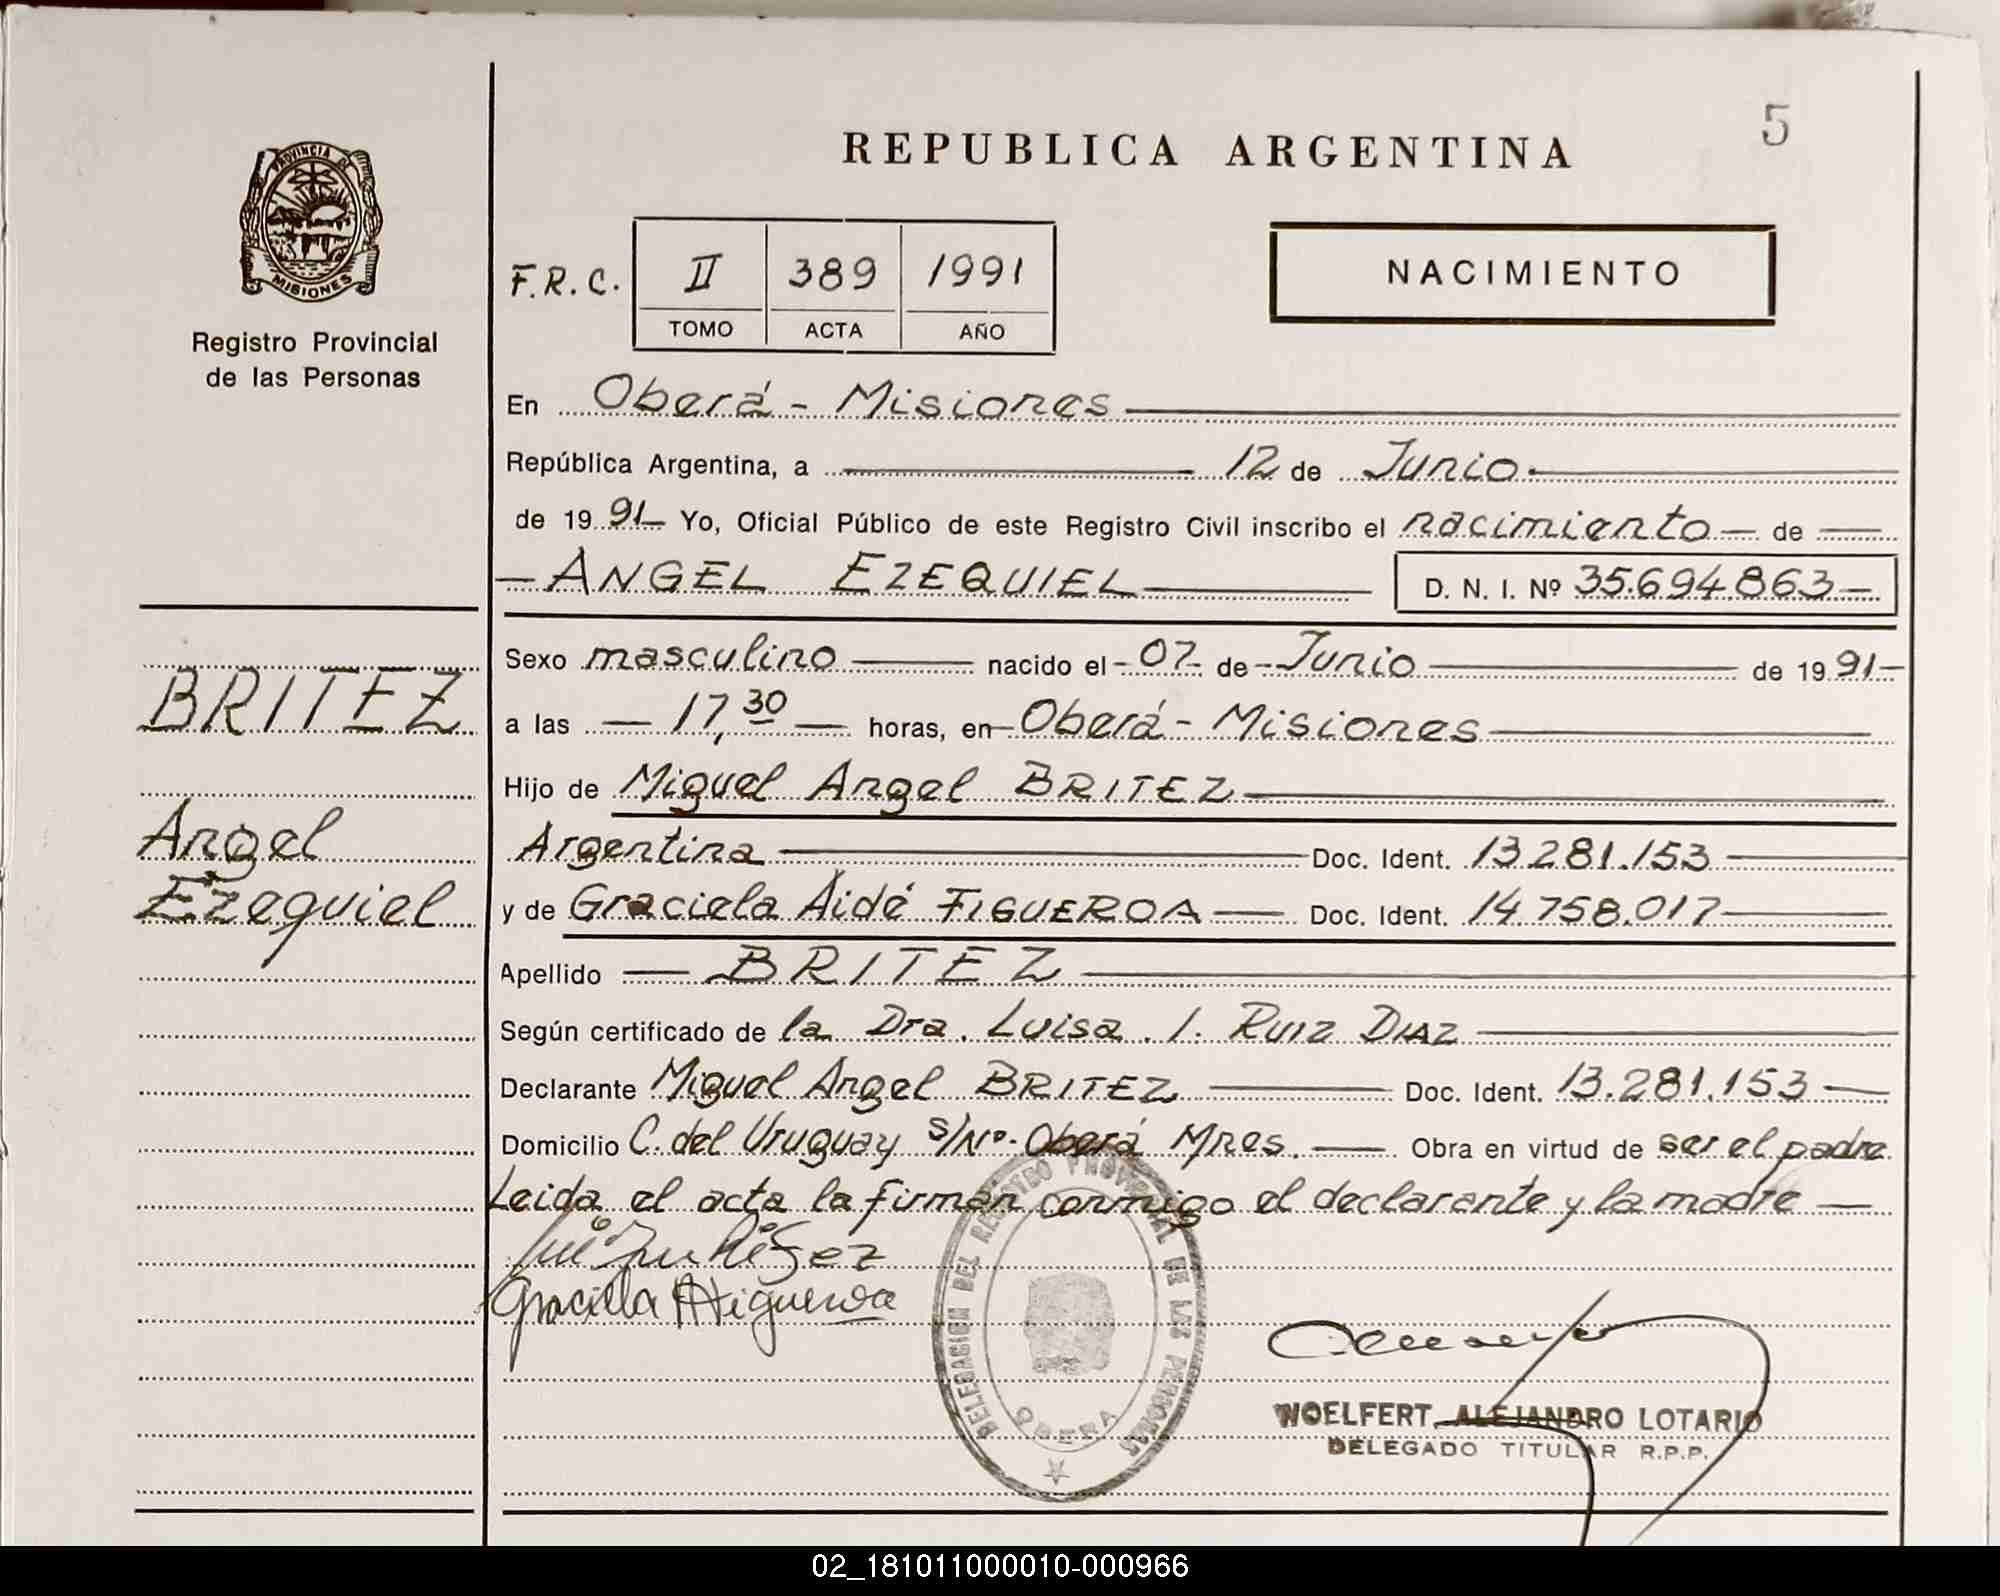 5
REPUBLICA ARGENTINA
PROVINCIA DE
MISIONES
Registro Provincial
de las Personas
F.R.C. II 389 1991
TOMO ACTA AÑO
NACIMIENTO
En Oberá - Misiones
República Argentina, a 12 de Junio
de 1991 Yo, Oficial Público de este Registro Civil inscribo el nacimiento de
ANGEL EZEQUIEL D. N. I. Nº 35.694.863
BRITEZ
Angel
Ezequiel
Sexo masculino nacido el 07 de Junio de 1991
a las 17,30 horas, en Oberá - Misiones
Hijo de Miguel Angel BRITEZ
Argentina Doc. Ident. 13.281.153
y de Graciela Aidé FIGUEROA Doc. Ident. 14.758.017
Apellido BRITEZ
Según certificado de la Dra. Luisa. I. RUIZ DIAZ
Declarante Miguel Angel BRITEZ Doc. Ident. 13.281.153
Domicilio C. del Uruguay s/Nº. Oberá Mnes. Obra en virtud de ser el padre
Leida el acta la firman conmigo el declarante y la madre
DELEGACION DEL REGISTRO PROVINCIAL DE LAS PERSONAS
OBERA
WOELFERT ALEJANDRO LOTARIO
DELEGADO TITULAR R.P.P.
02_181011000010-000966